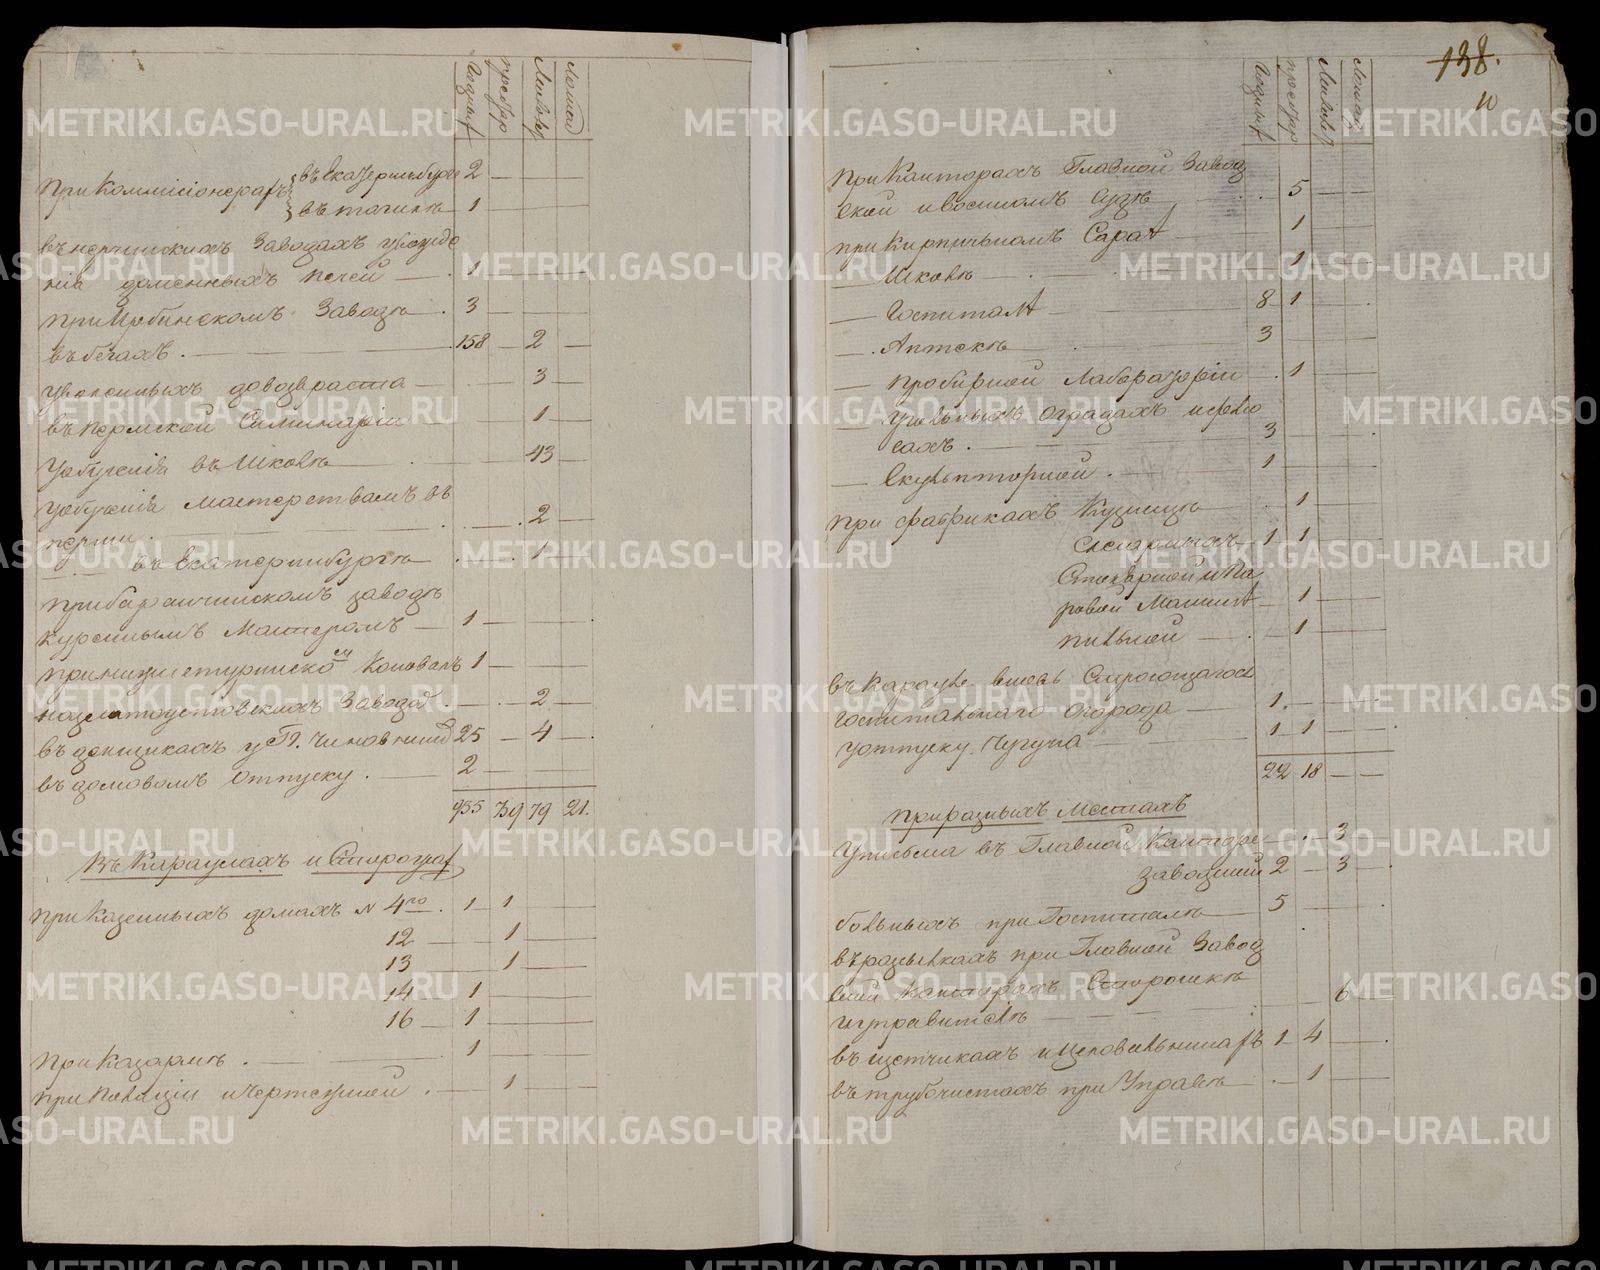 Годныхъ
престар
Малолѣт
Лошад
при Коммисіонерахъ въ Екатеринбурге 2 — — —
въ тагилѣ 1 — — —
въ нерчинскихъ Заводахъ
доменныхъ печей — 1 — — —
при Заводѣ . 3 — — —
въ бѣгахъ . — 158 — 2 —
уволенныхъ до возвраста — 3 —
въ пермской Семинаріи — 1 —
у обученія въ Школѣ — 43 —
у обученія мастерствамъ въ
перми . — 2 —
въ Екатеринбургѣ — 1 —
при баранчинскомъ заводѣ
куреннымъ Мастеромъ — 1 — — —
при нижнетуринскомъ Коновалъ 1 — — —
на златоустовскихъ Заводахъ . — 2 —
въ денщикахъ у Гг. Чиновниковъ 25 — 4 —
въ домовомъ отпуску . — 2 — — —
955 39 79 21.
Въ Караулахъ и Сторожахъ
при Казенныхъ домахъ № 4го . 1 1 — —
12 — 1 — —
13 — 1 — —
14 — 1 — — —
16 — 1 — — —
при Казармѣ . — 1 — — —
при Полиціи и Чертежной . — 1 — —
138.
10
Годныхъ
престар
Малолѣт
Лошад
при Канторахъ Главной Завод
ской и военномъ Судѣ — 5 — —
при Кирпичномъ Сараѣ — 1 — —
— Школѣ — 1 — —
— Госпиталѣ — 8 1 — —
— Аптекѣ — 3 — — —
— пробирной Лабораторіи . 1 — —
— угольныхъ оградахъ и
сахъ . — 3 — — —
— Скульпторной . — 1 — — —
При фабрикахъ Кузницѣ — 1 — —
Слесарныхъ — 1 1 — —
Столярной и Па
ровой Машинѣ — 1 — —
пильной — 1 — —
въ Карауле вновь Строющагося
госпитальнаго огорода — 1. — — —
у отпуску Чугуна — 1 1 — —
22 18 — —
При разныхъ Местахъ
У письма въ Главной Канторе — 3 —
заводской 2 — 3 —
больныхъ при Госпиталѣ — 5 — — —
въ разсылкахъ при Главной Завод
ской канторахъ Сторожкѣ
и управителѣ — 6 —
въ щетчикахъ и Целовальникахъ 1 4 — —
въ трубочистахъ при Управѣ — 1 — —
METRIKI.GASO-URAL.RU